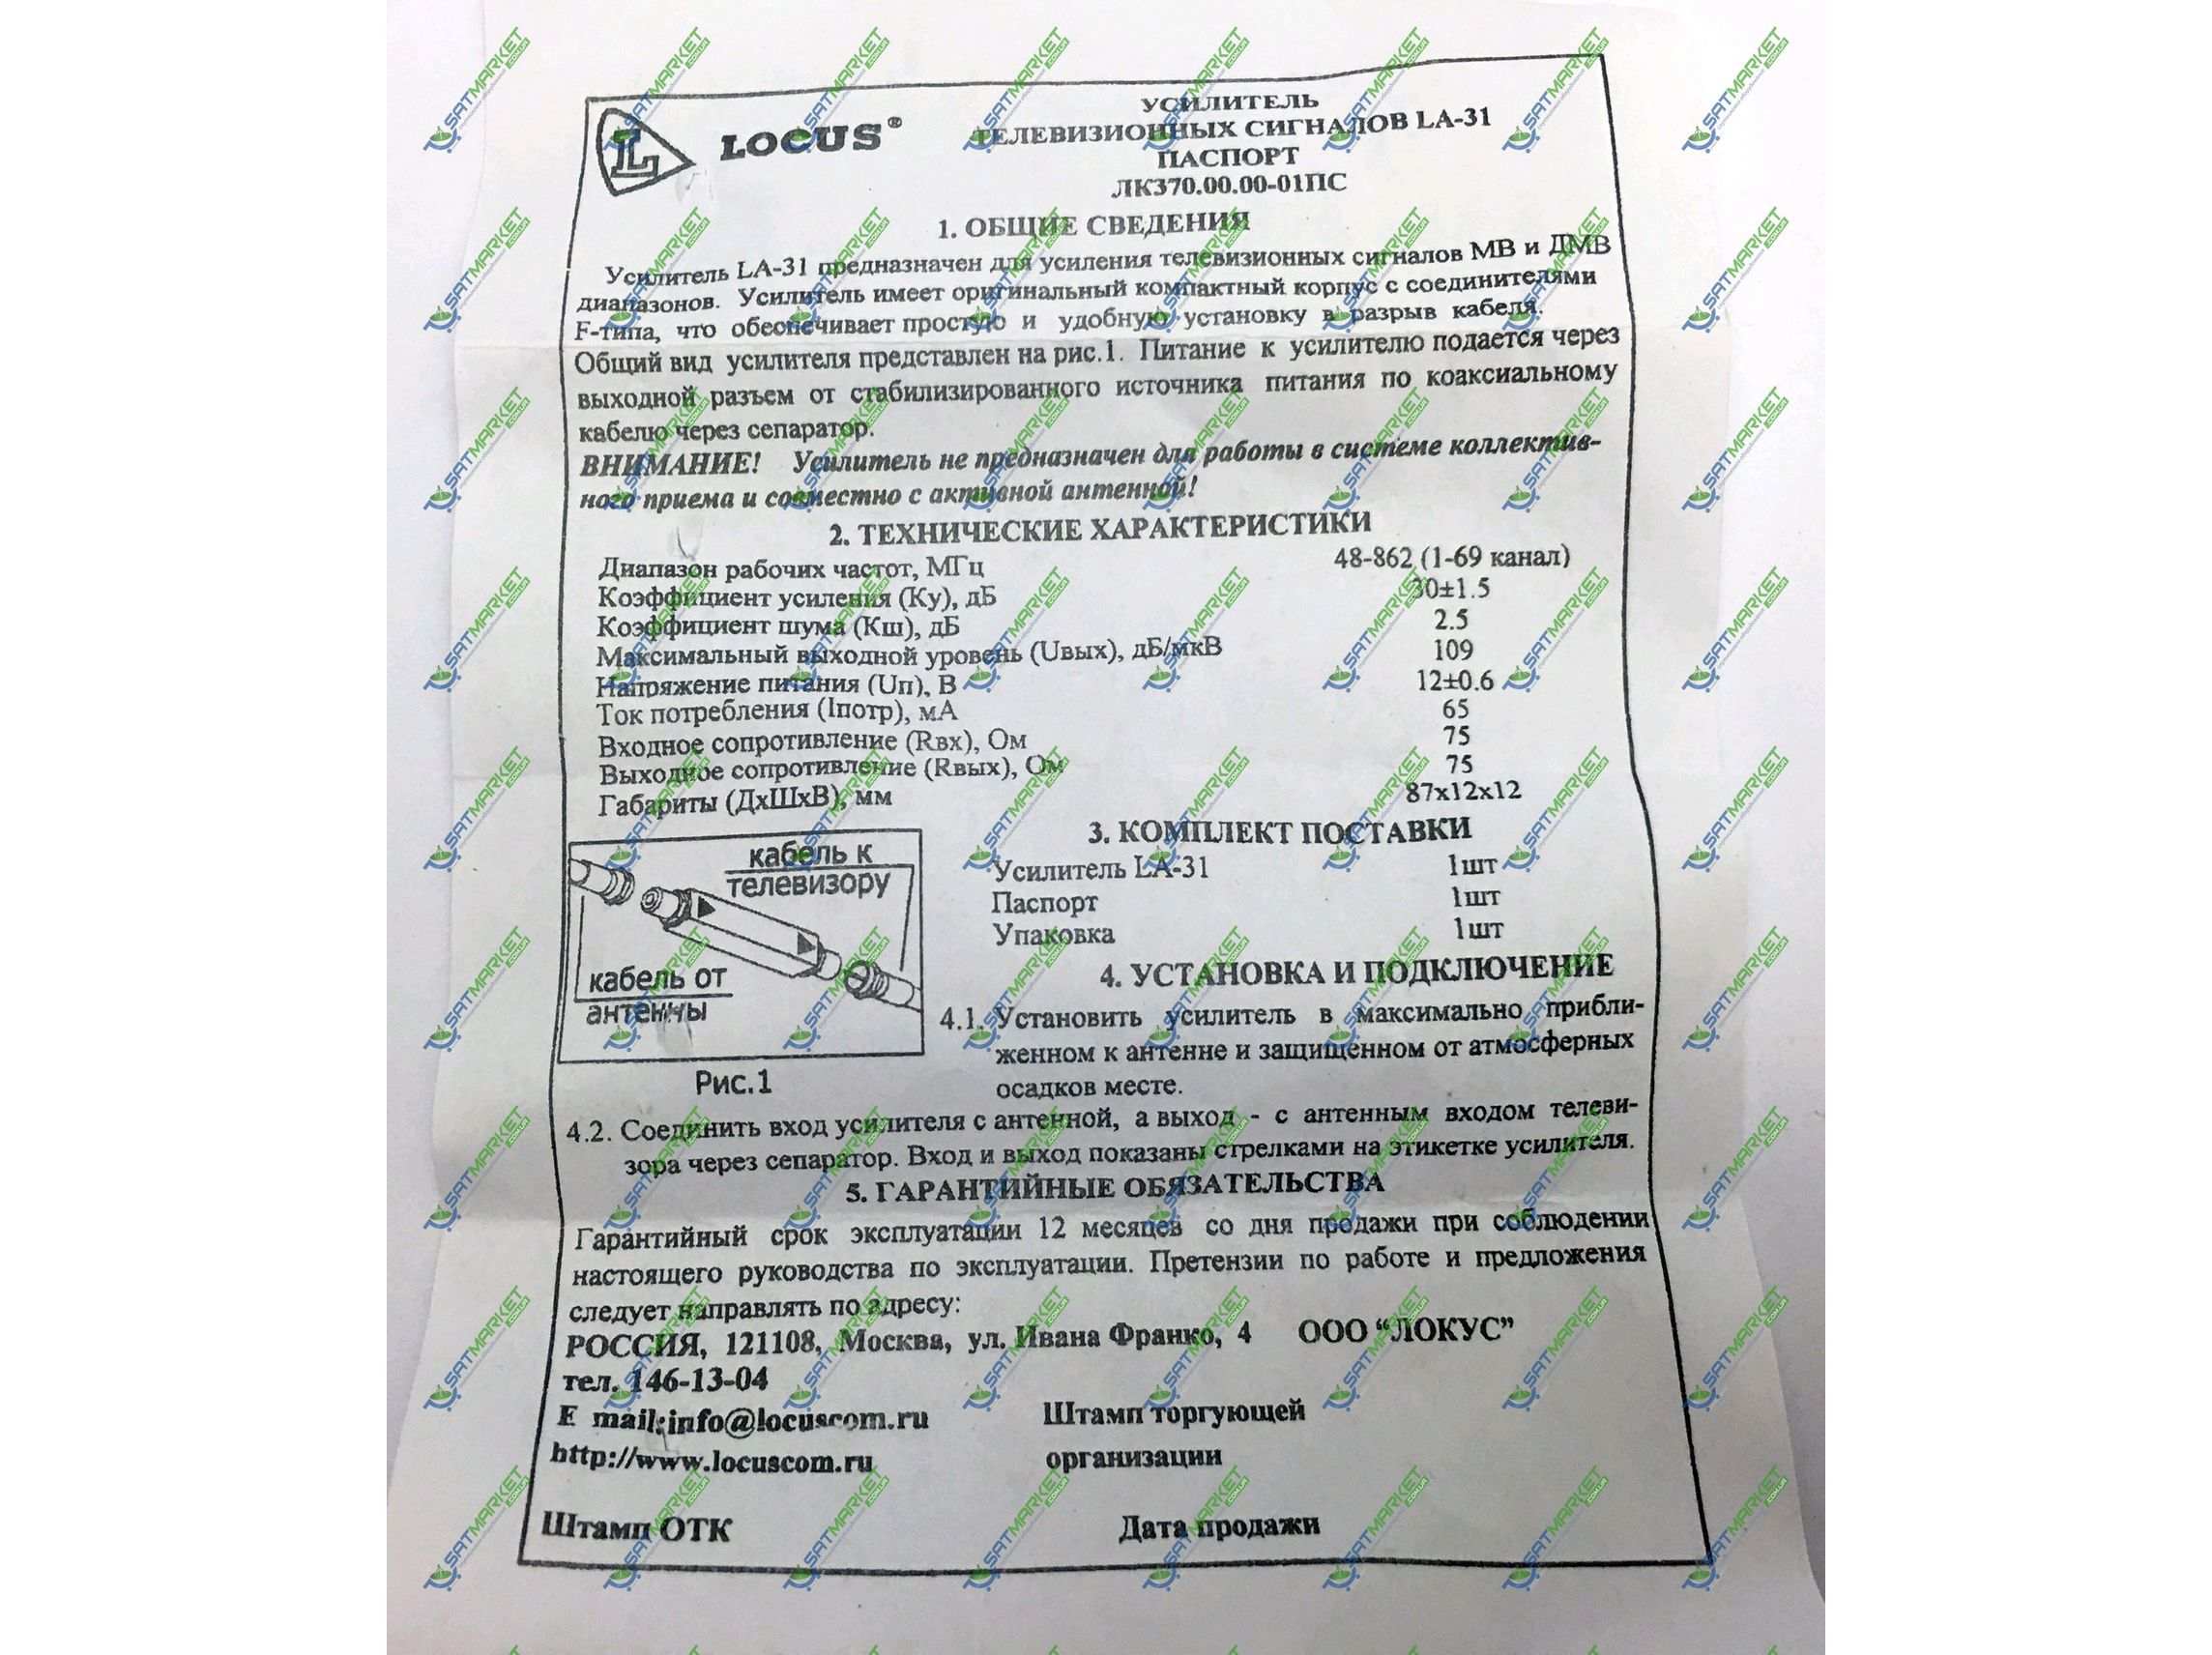 LOCUS®
УСИЛИТЕЛЬ
ТЕЛЕВИЗИОННЫХ СИГНАЛОВ LA-31
ПАСПОРТ
ЛК370.00.00-01ПС
1. ОБЩИЕ СВЕДЕНИЯ
Усилитель LA-31 предназначен для усиления телевизионных сигналов МВ и ДМВ
диапазонов. Усилитель имеет оригинальный компактный корпус с соединителями
F-типа, что обеспечивает простую и удобную установку в разрыв кабеля.
Общий вид усилителя представлен на рис.1. Питание к усилителю подается через
выходной разъем от стабилизированного источника питания по коаксиальному
кабелю через сепаратор.
ВНИМАНИЕ! Усилитель не предназначен для работы в системе коллектив-
ного приема и совместно с активной антенной!
2. ТЕХНИЧЕСКИЕ ХАРАКТЕРИСТИКИ
Диапазон рабочих частот, МГц 48-862 (1-69 канал)
Коэффициент усиления (Ку), дБ 30±1.5
Коэффициент шума (Кш), дБ 2.5
Максимальный выходной уровень (Uвых), дБ/мкВ 109
Напряжение питания (Uп), В 12±0.6
Ток потребления (Iпотр), мА 65
Входное сопротивление (Rвх), Ом 75
Выходное сопротивление (Rвых), Ом 75
Габариты (ДхШхВ), мм 87х12х12
кабель к
телевизору
кабель от
антенны
Рис.1
3. КОМПЛЕКТ ПОСТАВКИ
Усилитель LA-31 1шт
Паспорт 1шт
Упаковка 1шт
4. УСТАНОВКА И ПОДКЛЮЧЕНИЕ
4.1. Установить усилитель в максимально прибли-
женном к антенне и защищенном от атмосферных
осадков месте.
4.2. Соединить вход усилителя с антенной, а выход - с антенным входом телеви-
зора через сепаратор. Вход и выход показаны стрелками на этикетке усилителя.
5. ГАРАНТИЙНЫЕ ОБЯЗАТЕЛЬСТВА
Гарантийный срок эксплуатации 12 месяцев со дня продажи при соблюдении
настоящего руководства по эксплуатации. Претензии по работе и предложения
следует направлять по адресу:
РОССИЯ, 121108, Москва, ул. Ивана Франко, 4 ООО “ЛОКУС”
тел. 146-13-04
E mail:info@locuscom.ru Штамп торгующей
http://www.locuscom.ru организации
Штамп ОТК Дата продажи
SATMARKET